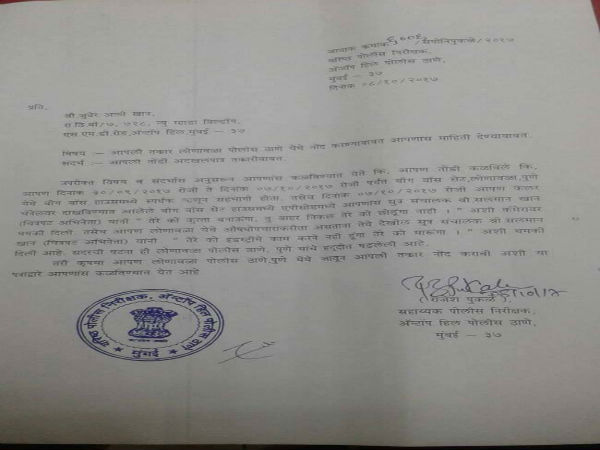 जावक क्रमांक /सपोनिपुकळे/२०१७
वरिष्ठ पोलीस निरीक्षक,
अँटॉप हिल पोलीस ठाणे,
मुंबई – ३७
दिनांक ०८/१०/२०१७
प्रति,
श्री जुबेर आली खान,
न्यु म्हाडा बिल्डींग,
एस एम डी रोड, अँन्टॉप हिल, मुंबई – ३७
विषय :– आपली तकार लोणावळा पोलीस ठाणे येथे नोंद करण्याबाबत आपणास माहिती देण्याबाबत.
संदर्भ :– आपली तोंडी अदखलपात्र तकारीबाबत.
उपरोक्त विषय व संदर्भास अनुसरून आपणांस कळविण्यात येते कि, आपण तोंडी कळविले कि,
आपण दिनांक ३०/०९/२०१७ रोजी ते दिनांक ०७/१०/२०१७ रोजी पर्यंत बीग बॉस सेट, लोणावळा, पुणे
येथे बीग बॉस हाऊसमध्ये स्पर्धक म्हणुन सहभागी होता. तसेच दिनांक ०७/१०/२०१७ रोजी आपण कलर
चॅनेलवर दाखविण्यात आलेले बीग बॉस से हाऊसमध्ये एपीसोडमध्ये आपणांस सुत्र संचालक श्री सलमान खान
(चित्रपट अभिनेता) यांनी " तेरे को कुत्ता बनाऊंगा, तु बाहर निकल तेरे को छोडूंगा नाही । " अशी कॅमेरावर
धमकी दिली तसेच आपण लोणावळा येथे औषधोपचाराकरीता असताना तेथे देखील सुत्र संचालक श्री सलमान
खान (चित्रपट अभिनेता) यांनी " तेरे को इंडस्ट्रीमे काम करने नही दूंगा तेरे को मारूंगा । " अशी धमकी
दिली आहे. सदरची घटना ही लोणावळा पोलीस ठाणे, पुणे यांचे हद्दीत घडलेली आहे.
तरी कृपया आपण लोणावळा पोलीस ठाणे, पुणे येथे जावुन आपली तकार नोंद करावी अशी या
पत्राद्वारे आपणांस कळविण्यात येत आहे
(राजेश पुकळे),
सहाय्यक पोलीस निरीक्षक,
अँन्टॉप हिल पोलीस ठाणे,
मुंबई – ३७
वरिष्ठ पोलीस निरीक्षक, अँन्टॉप हिल पोलीस ठाणे
मुंबई